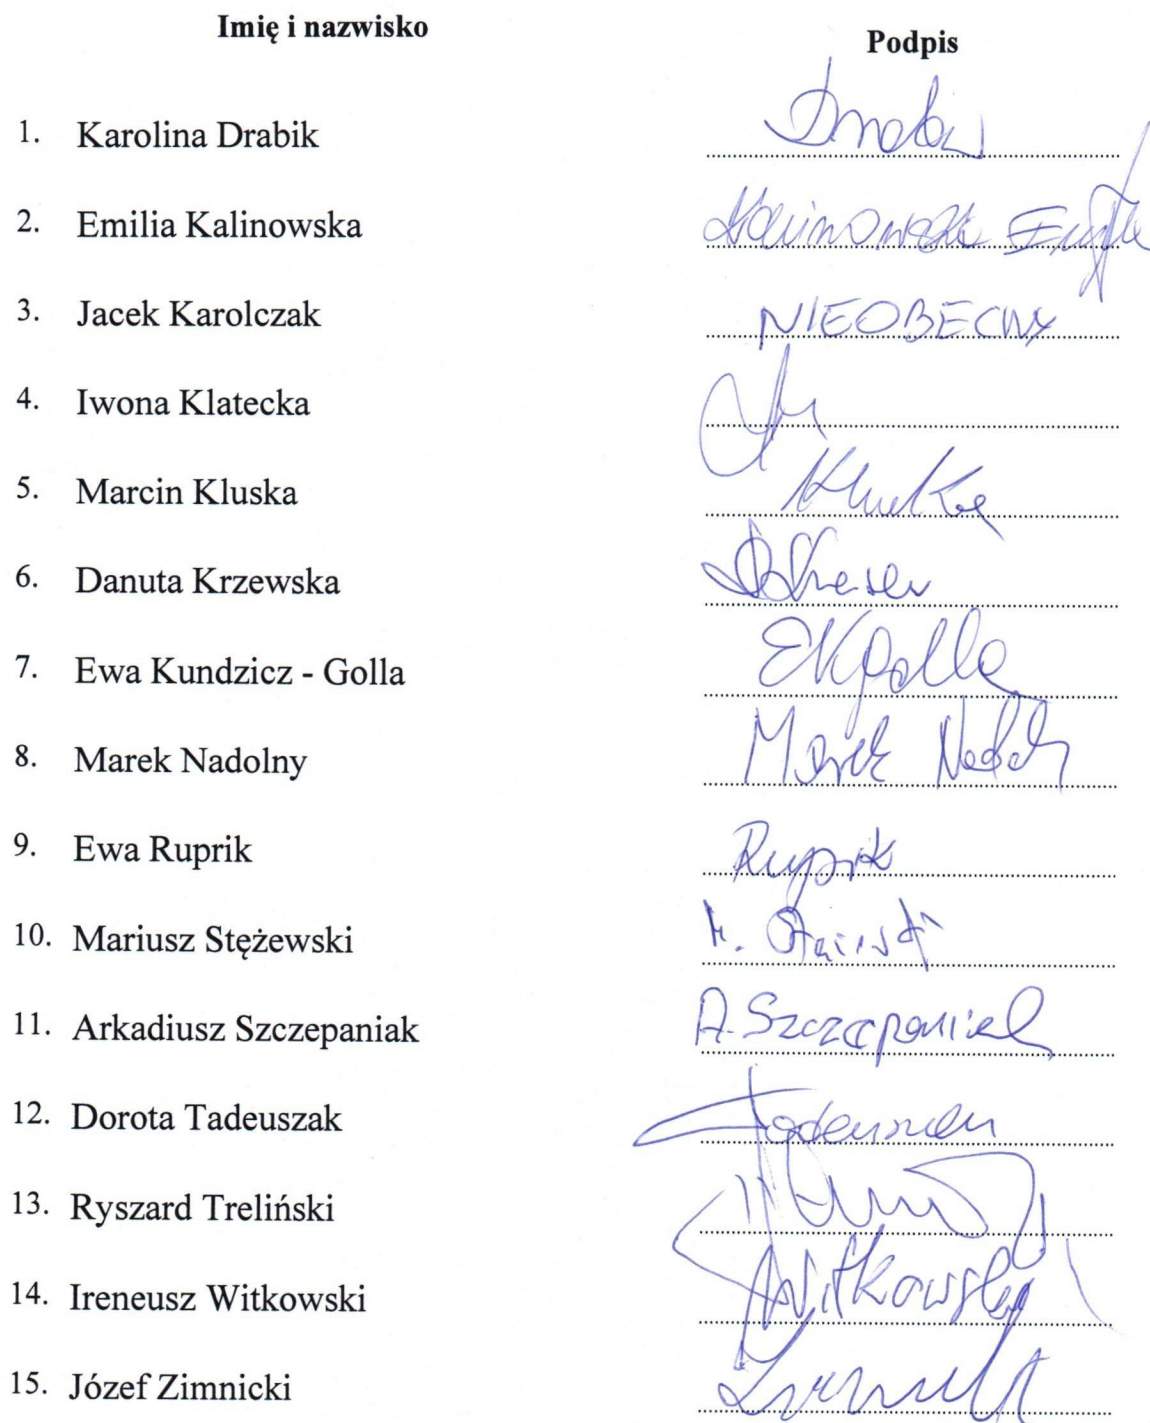 Imię i nazwisko
Podpis
1. Karolina Drabik
2. Emilia Kalinowska Kalinowska
3. Jacek Karolczak NIEOBECNY
4. Iwona Klatecka
5. Marcin Kluska Kluska
6. Danuta Krzewska
7. Ewa Kundzicz - Golla EKGolla
8. Marek Nadolny Marek
9. Ewa Ruprik Ruprik
10. Mariusz Stężewski
11. Arkadiusz Szczepaniak A. Szczepaniak
12. Dorota Tadeuszak
13. Ryszard Treliński
14. Ireneusz Witkowski Witkowski
15. Józef Zimnicki